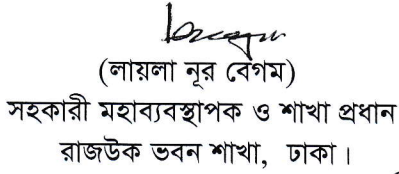 (লায়লা নূর বেগম)
সহকারী মহাব্যবস্থাপক ও শাখা প্রধান
রাজউক ভবন শাখা, ঢাকা।